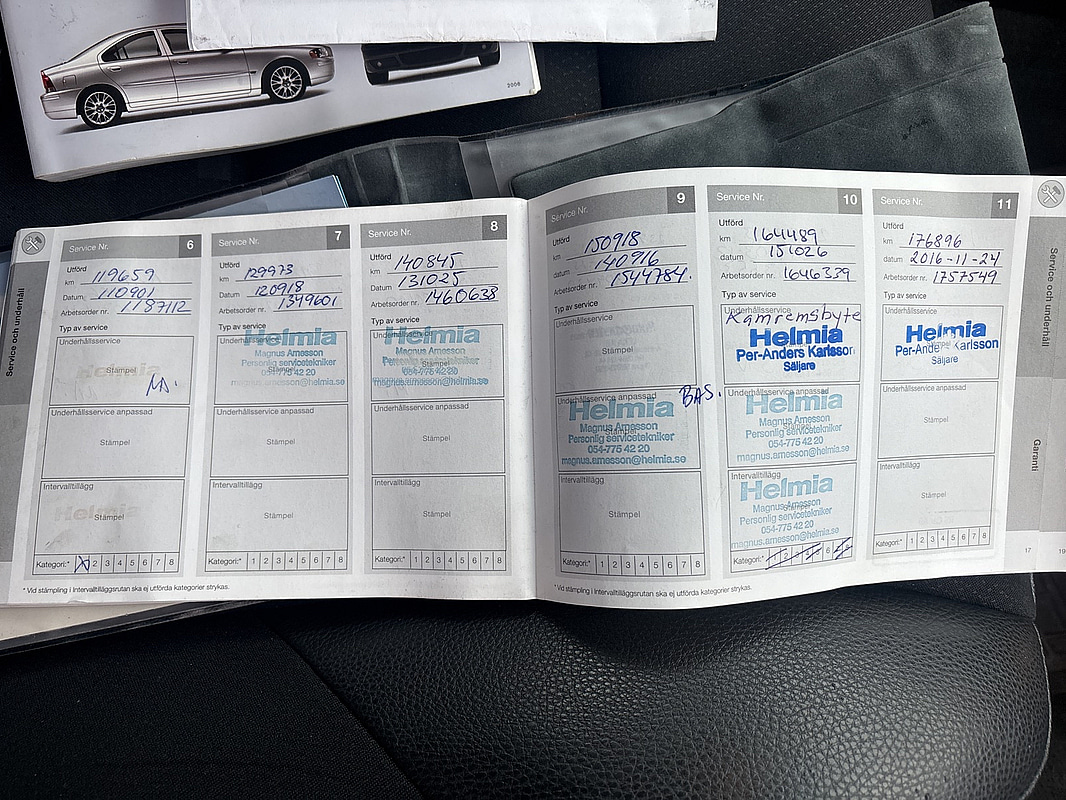 2006
Service och underhåll
Service Nr. 6
Utförd
km 119659
Datum 110901
Arbetsorder nr. 1187112
Typ av service
Underhållsservice
Helmia
Stämpel
Underhållsservice anpassad
Stämpel
Intervalltillägg
Helmia
Stämpel
Kategori:* 1 2 3 4 5 6 7 8
Service Nr. 7
Utförd
km 129973
Datum 120918
Arbetsorder nr. 1349601
Typ av service
Underhållsservice
Helmia
Magnus Arnesson
Personlig servicetekniker
054-775 42 20
magnus.arnesson@helmia.se
Stämpel
Underhållsservice anpassad
Stämpel
Intervalltillägg
Stämpel
Kategori:* 1 2 3 4 5 6 7 8
Service Nr. 8
Utförd
km 140845
Datum 131025
Arbetsorder nr. 1460638
Typ av service
Underhållsservice
Helmia
Magnus Arnesson
Personlig servicetekniker
054-775 42 20
magnus.arnesson@helmia.se
Stämpel
Underhållsservice anpassad
Stämpel
Intervalltillägg
Stämpel
Kategori:* 1 2 3 4 5 6 7 8
* Vid stämpling i Intervalltilläggsrutan ska ej utförda kategorier strykas.
Service Nr. 9
Utförd
km 150918
datum 140916
Arbetsorder nr. 1544784.
Typ av service
Underhållsservice
Stämpel
BAS.
Underhållsservice anpassad
Helmia
Magnus Arnesson
Personlig servicetekniker
054-775 42 20
magnus.arnesson@helmia.se
Stämpel
Intervalltillägg
Stämpel
Kategori:* 1 2 3 4 5 6 7 8
Service Nr. 10
Utförd
km 164489
datum 151026
Arbetsorder nr. 1646339
Typ av service
Underhållsservice
Kamremsbyte
Helmia
Per-Anders Karlsson
Säljare
Underhållsservice anpassad
Helmia
Magnus Arnesson
Personlig servicetekniker
054-775 42 20
magnus.arnesson@helmia.se
Stämpel
Intervalltillägg
Helmia
Magnus Arnesson
Personlig servicetekniker
054-775 42 20
magnus.arnesson@helmia.se
Stämpel
Kategori:* 1 2 6
Service Nr. 11
Utförd
km 176896
datum 2016-11-24
Arbetsorder nr. 1757549
Typ av service
Underhållsservice
Helmia
Per-Anders Karlsson
Säljare
Stämpel
Underhållsservice anpassad
Stämpel
Intervalltillägg
Stämpel
Kategori:* 1 2 3 4 5 6 7 8
* Vid stämpling i Intervalltilläggsrutan ska ej utförda kategorier strykas.
17
Service och underhåll
Garanti
19